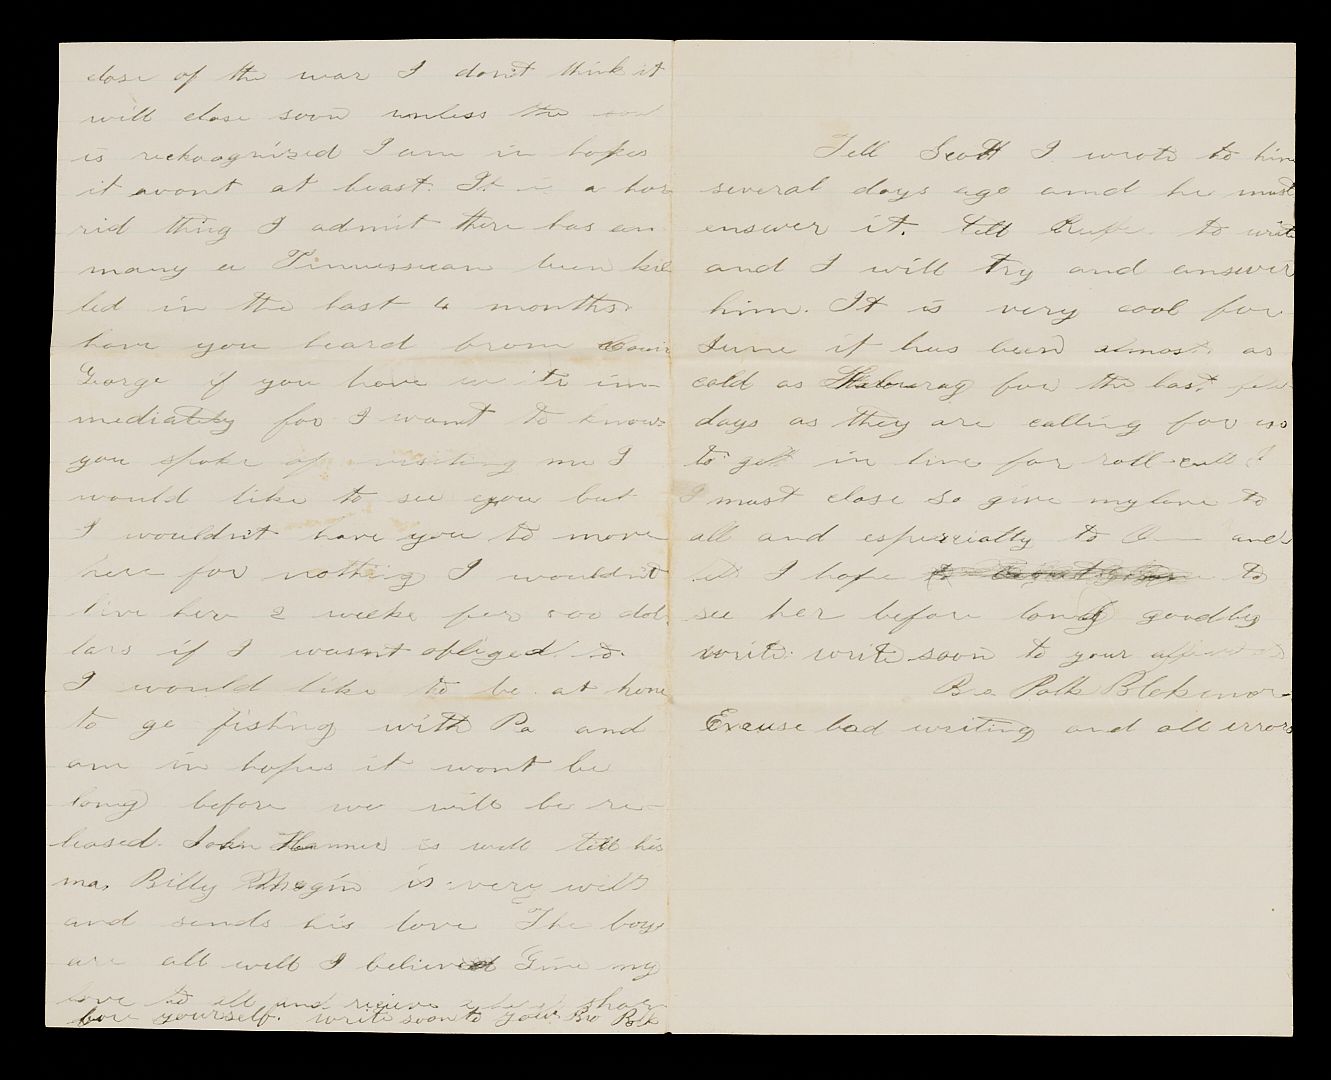 close of the war I dont think it
will close soon unless the
is reckoognized I am in hopes
it wont at least. It is a hor
rid thing I admit there has been
many a Tinnesseean been kil
led in the last 4 months.
have you heard from Cousin
George if you have write im-
mediately for I want to know.
you spoke of visiting me I
would like to see you but
I wouldnt have you to move
here for nothing I wouldnt
live here 2 weeks for 500 dol
lars if I wasnt obliged to
I would like to be at home
to go fishing with Pa and
am in hopes it wont be
long before we will be re-
leased. John is well tell his
ma, Billy is very well
and sends his love The boys
are all well I believe Give my
love to all and recieve a share
for yourself. write soon to your Bro Polk
Tell Scott I wrote to him
several days ago and he must
answer it. tell Rufe to write
and I will try and answer
him. It is very cool for
June it has been almost as
cold as for the last few
days as they are calling for us
to get in line for roll-call
I must close so give my love to
all and esperially to and
I hope to
see her before long goodby
write write soon to your
Bro Polk Blckmor
Excuse bad writing and all errors